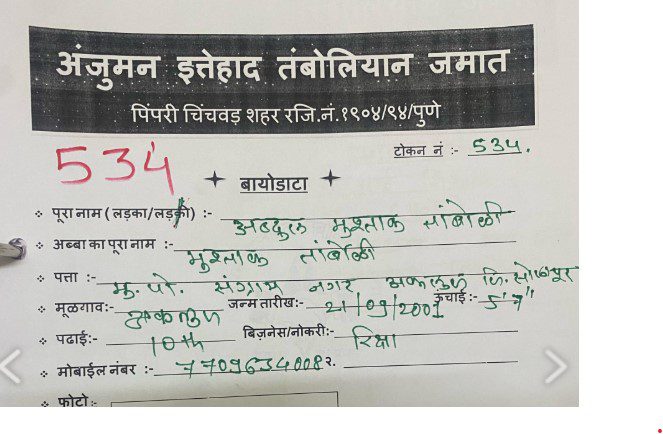 अंजुमन इत्तेहाद तंबोलियान जमात
पिंपरी चिंचवड़ शहर रजि.नं.१९०४/९४/पुणे
534
टोकन नं :- 534.
बायोडाटा
पूरा नाम ( लड़का/लड़की) :- अब्दुल मुश्ताक तांबोळी
अब्बा का पूरा नाम :- मुश्ताक तांबोळी
पत्ता :- मु. पो. संग्राम नगर अकलुज जि. सोलापूर
मूळगाव:- अकलुज जन्म तारीख:- 21/09/2001 ऊंचाई :- 5'7"
पढाई:- 10th बिज़नेस/नोकरी:- रिक्षा
मोबाईल नंबर :- 7709634008 २.
फोटो :-